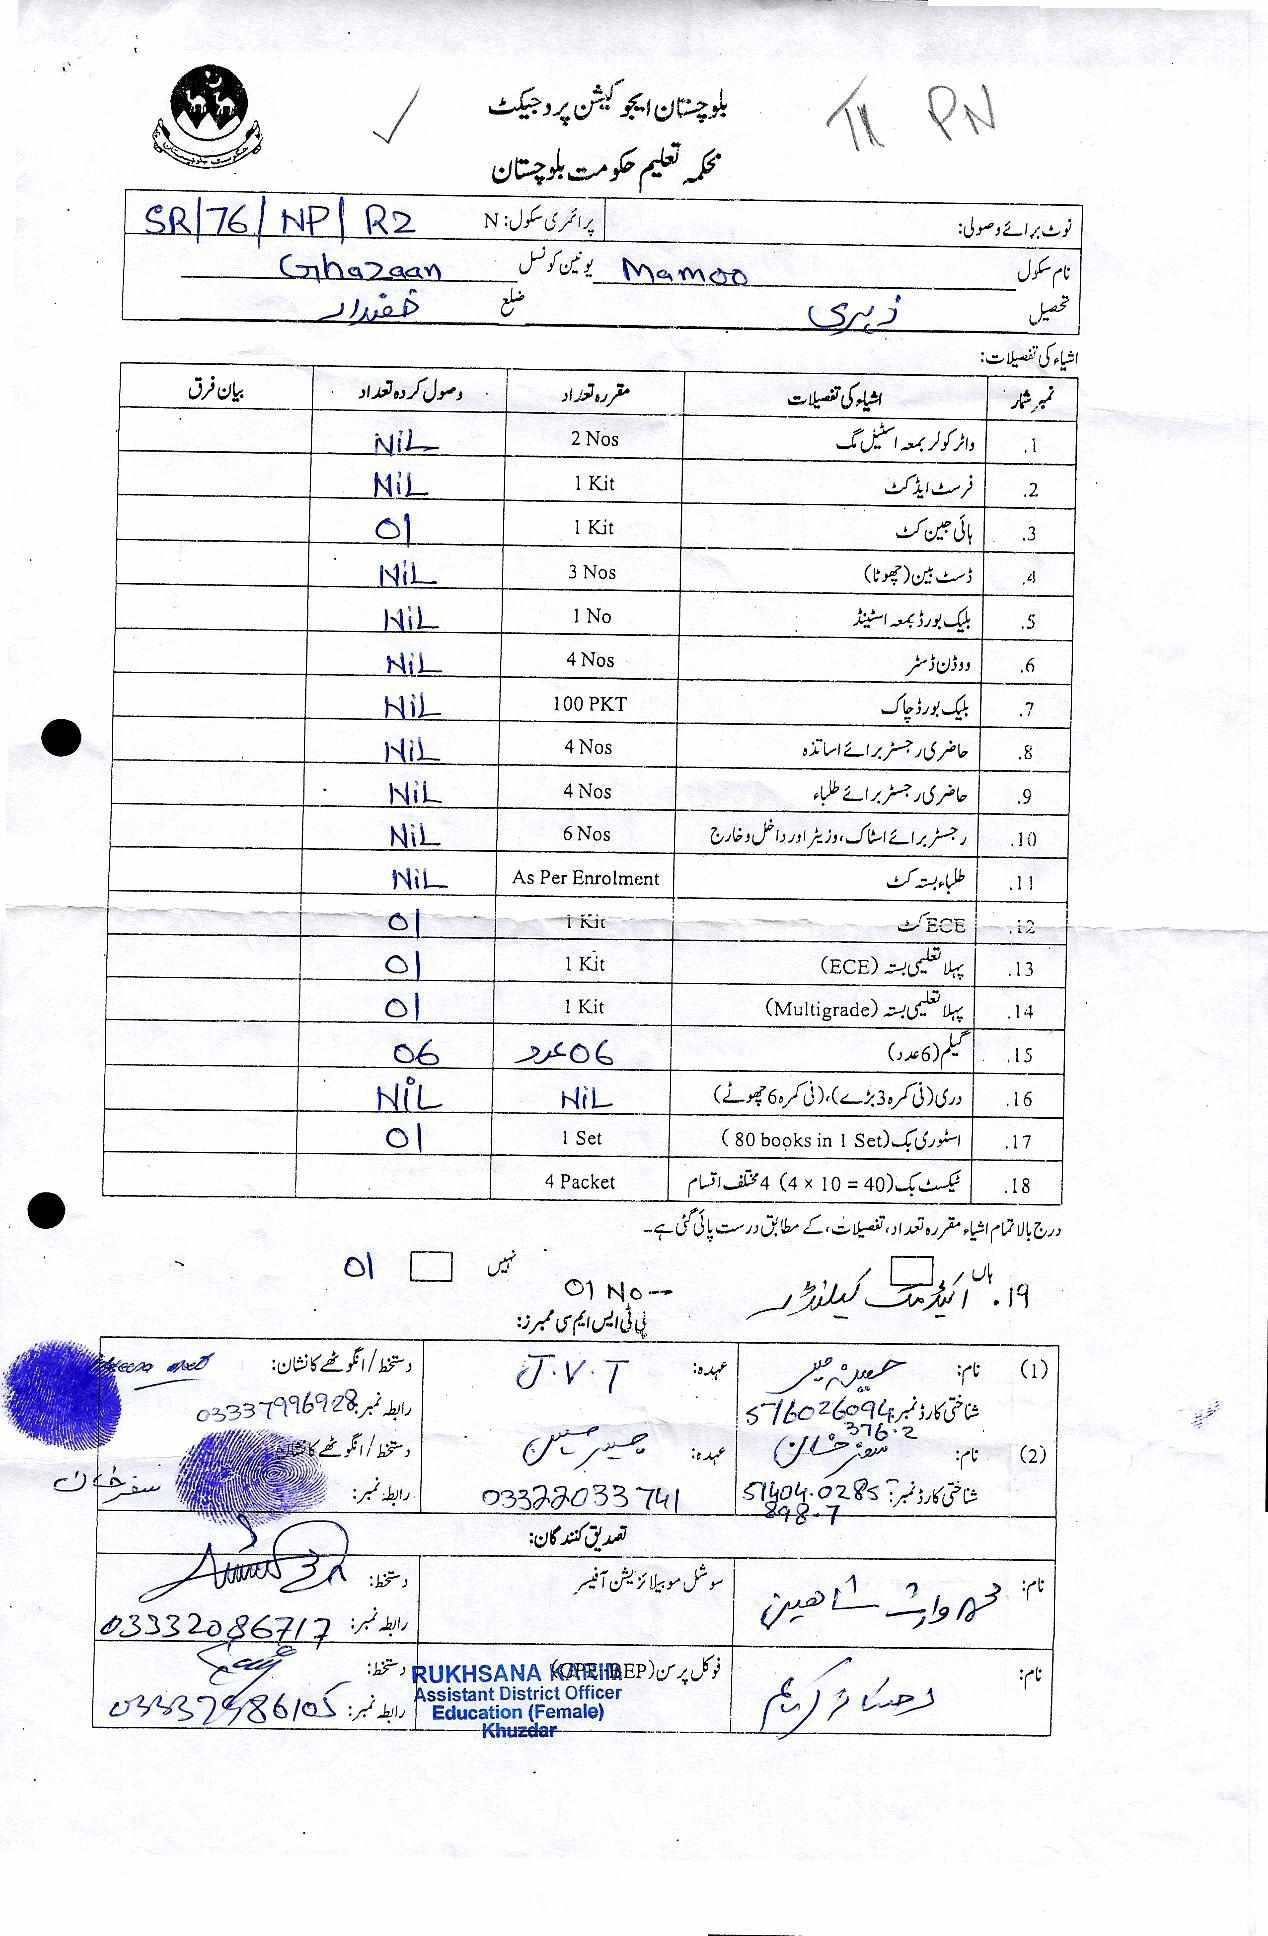 TX PN
بلوچستان ایجوکیشن پروجیکٹ
محکمہ تعلیم حکومت بلوچستان
نوٹ برائے وصولی: پرائمری سکول: N SR/76/NP/R2
نام سکول Mamoo یونین کونسل Ghazaan
تحصیل زہری ضلع خضدار
اشیاء کی تفصیلات:
نمبر شمار اشیاء کی تفصیلات مقررہ تعداد وصول کردہ تعداد بیان فرق
1. واٹر کولر بمعہ اسٹیل مگ 2 Nos NiL
2. فرسٹ ایڈ کٹ 1 Kit NiL
3. ہائی جین کٹ 1 Kit 01
4. ڈسٹ بین (چھوٹا) 3 Nos NiL
5. بلیک بورڈ بمعہ اسٹینڈ 1 No NiL
6. ووڈن ڈسٹر 4 Nos NiL
7. بلیک بورڈ چاک 100 PKT NiL
8. حاضری رجسٹر برائے اساتذہ 4 Nos NiL
9. حاضری رجسٹر برائے طلباء 4 Nos NiL
10. رجسٹر برائے اسٹاک، وزیٹر اور داخل و خارج 6 Nos NiL
11. طلباء بستہ کٹ As Per Enrolment NiL
12. ECE کٹ 1 Kit 01
13. پہلا تعلیمی بستہ (ECE) 1 Kit 01
14. پہلا تعلیمی بستہ (Multigrade) 1 Kit 01
15. گیلم (6 عدد) 06 عدد 06
16. دری (فی کمرہ 3 بڑے)، (فی کمرہ 6 چھوٹے) NiL NiL
17. اسٹوری بک (80 books in 1 Set) 1 Set 01
18. ٹیکسٹ بک (4 x 10 = 40) 4 مختلف اقسام 4 Packet
درج بالا تمام اشیاء مقررہ تعداد، تفصیلات، کے مطابق درست پائی گئی ہے۔
ہاں نہیں 01
19. اکیڈمک کیلنڈر 01 No
پی ٹی ایس ایم سی ممبرز:
(1) نام: عہدہ: J.V.T دستخط/انگوٹھے کا نشان:
شناختی کارڈ نمبر: 516026094376-2 رابطہ نمبر: 03337996928
(2) نام: سفر خان عہدہ: دستخط/انگوٹھے کا نشان:
شناختی کارڈ نمبر: 51404-0285898-7 03322033741 رابطہ نمبر: سفر خان
تصدیق کنندگان:
نام: محمد وارث شاہین سوشل موبیلائزیشن آفیسر دستخط:
رابطہ نمبر: 03332086717
نام: رخسانہ کریم فوکل پرسن (GPE-BEP) دستخط:
رابطہ نمبر: 03337986105
RUKHSANA KARIM
Assistant District Officer
Education (Female)
Khuzdar